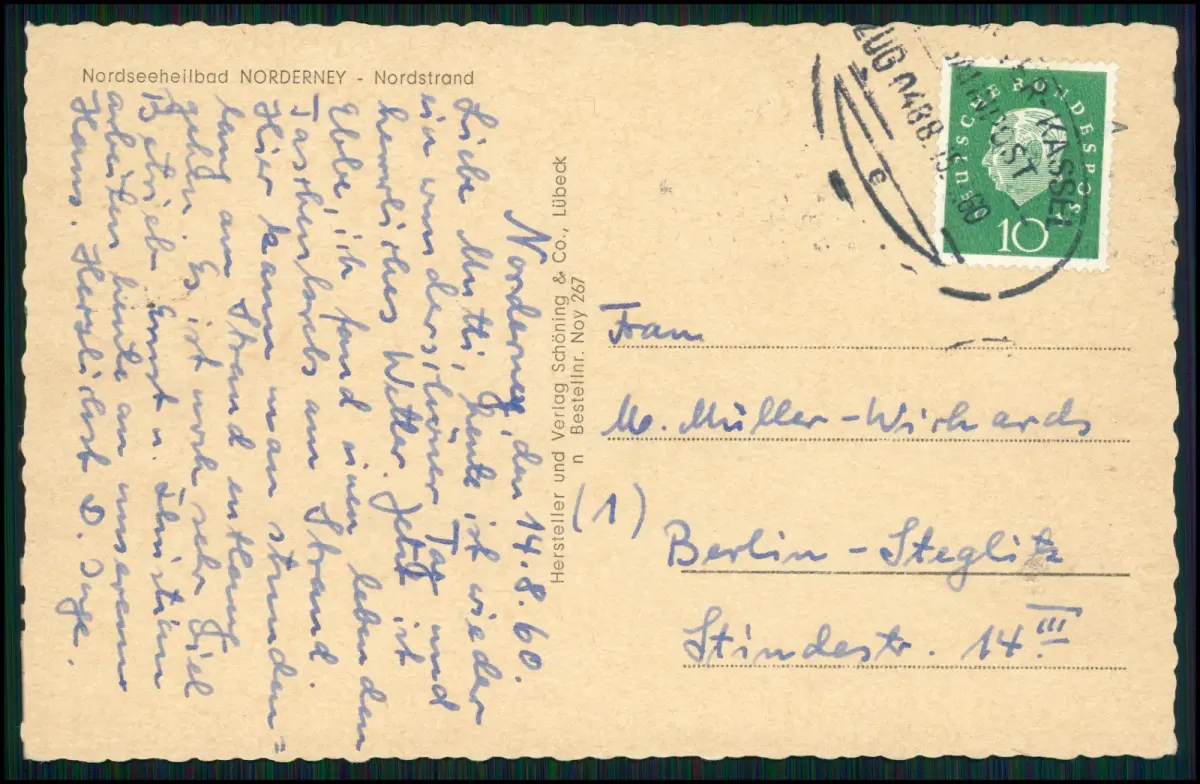 Nordseeheilbad NORDERNEY - Nordstrand
Norderney, den 14.8.60.
Liebe Mutti, heute ist wieder
ein wunderschöner Tag und
herrliches Wetter. Jetzt ist
Ebbe, ich fand einen lebenden
Taschenkrebs am Strand.
Hier kann man stunden=
lang am Strand entlang
gehen. Es ist noch sehr viel
Betrieb. Ernst u.
arbeiten heute an unserem
Haus. Herzlichst D. Inge.
Hersteller und Verlag Schöning & Co., Lübeck
n Bestellnr. Noy 267
DEUTSCHE BUNDESPOST
10
KASSEL
BAHNPOST
ZUG 0488
15. 60
e
Frau
M. Müller-Wichards
(1)
Berlin-Steglitz
Stindestr. 14 III